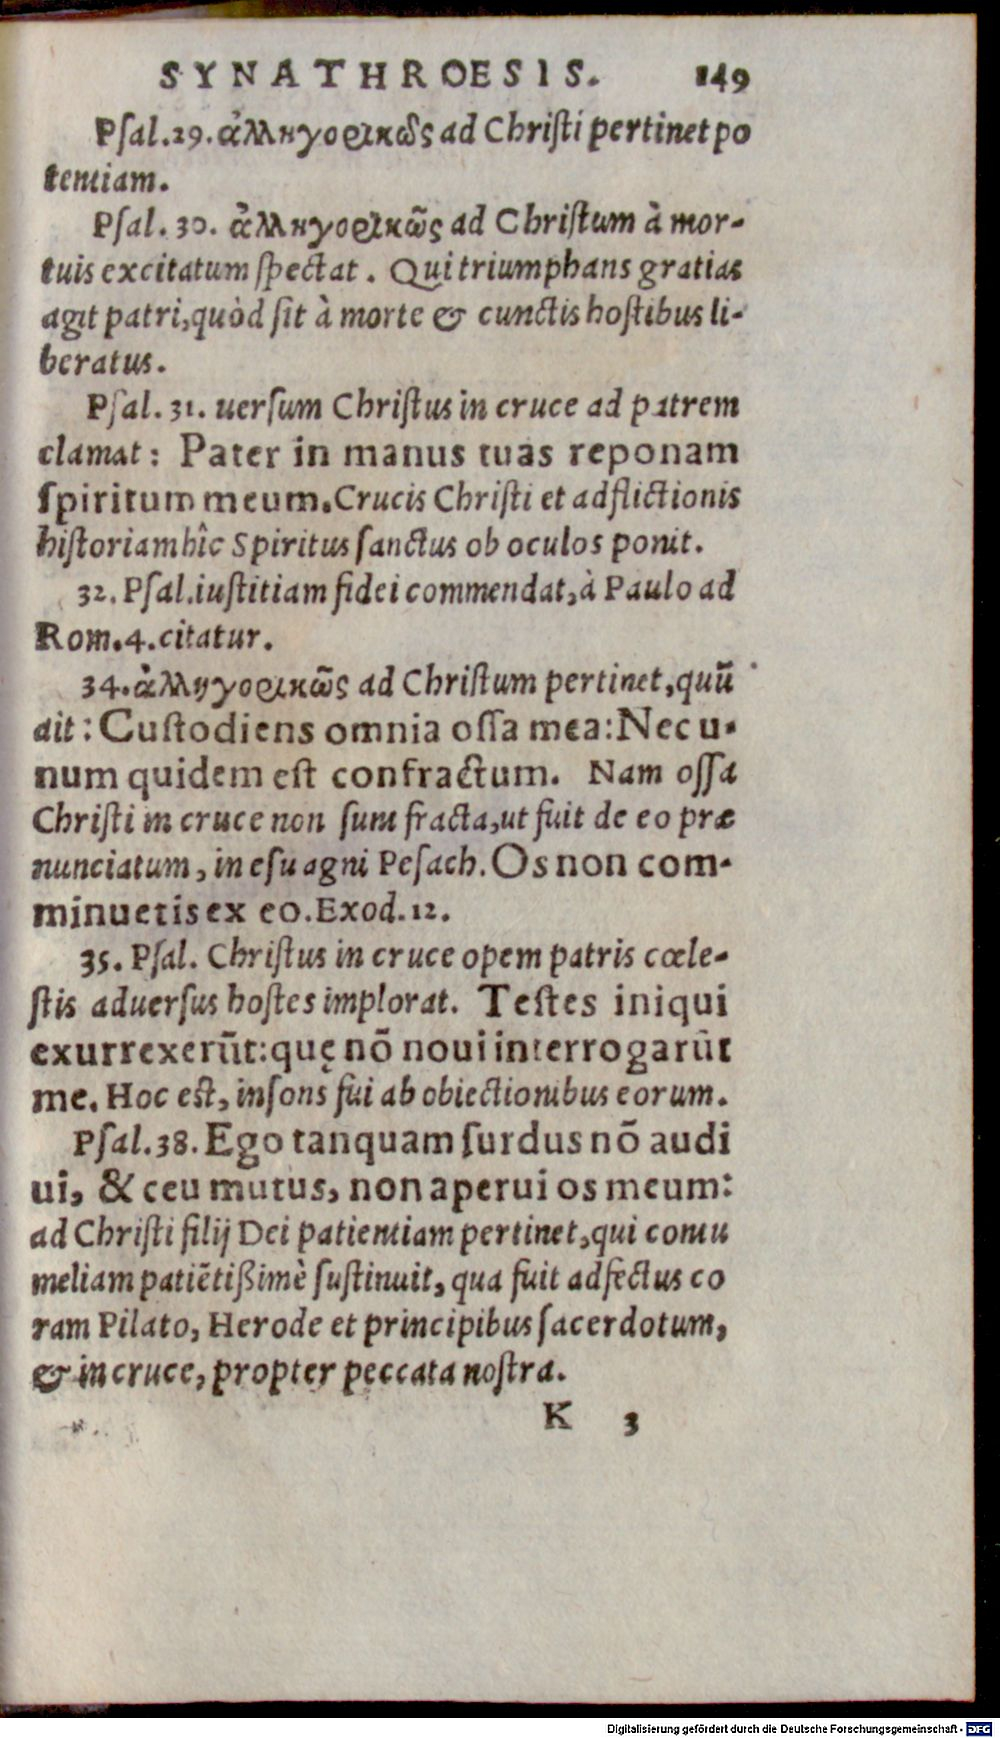 SYNATHROESIS. 149
Psal.29. ἀλληγορικῶς ad Christi pertinet po
tentiam.
Psal. 30. ἀλληγορικῶς ad Christum à mor-
tuis excitatum spectat. Qui triumphans gratias
agit patri, quòd sit à morte & cunctis hostibus li-
beratus.
Psal. 31. uersum Christus in cruce ad patrem
clamat: Pater in manus tuas reponam
spiritum meum. Crucis Christi et adflictionis
historiam hîc Spiritus sanctus ob oculos ponit.
32. Psal. iustitiam fidei commendat, à Paulo ad
Rom.4. citatur.
34. ἀλληγορικῶς ad Christum pertinet, quũ
ait: Custodiens omnia ossa mea: Nec u-
num quidem est confractum. Nam ossa
Christi in cruce non sunt fracta, ut fuit de eo præ
nunciatum, in esu agni Pesach. Os non com-
minuetis ex eo. Exod.12.
35. Psal. Christus in cruce opem patris cœle-
stis aduersus hostes implorat. Testes iniqui
exurrexerũt: quę nõ noui interrogarũt
me. Hoc est, insons fui ab obiectionibus eorum.
Psal.38. Ego tanquam surdus nõ audi
ui, & ceu mutus, non aperui os meum:
ad Christi filij Dei patientiam pertinet, qui contu
meliam patiẽtißimè sustinuit, qua fuit adfectus co
ram Pilato, Herode et principibus sacerdotum,
& in cruce, propter peccata nostra.
K 3
Digitalisierung gefördert durch die Deutsche Forschungsgemeinschaft - DFG